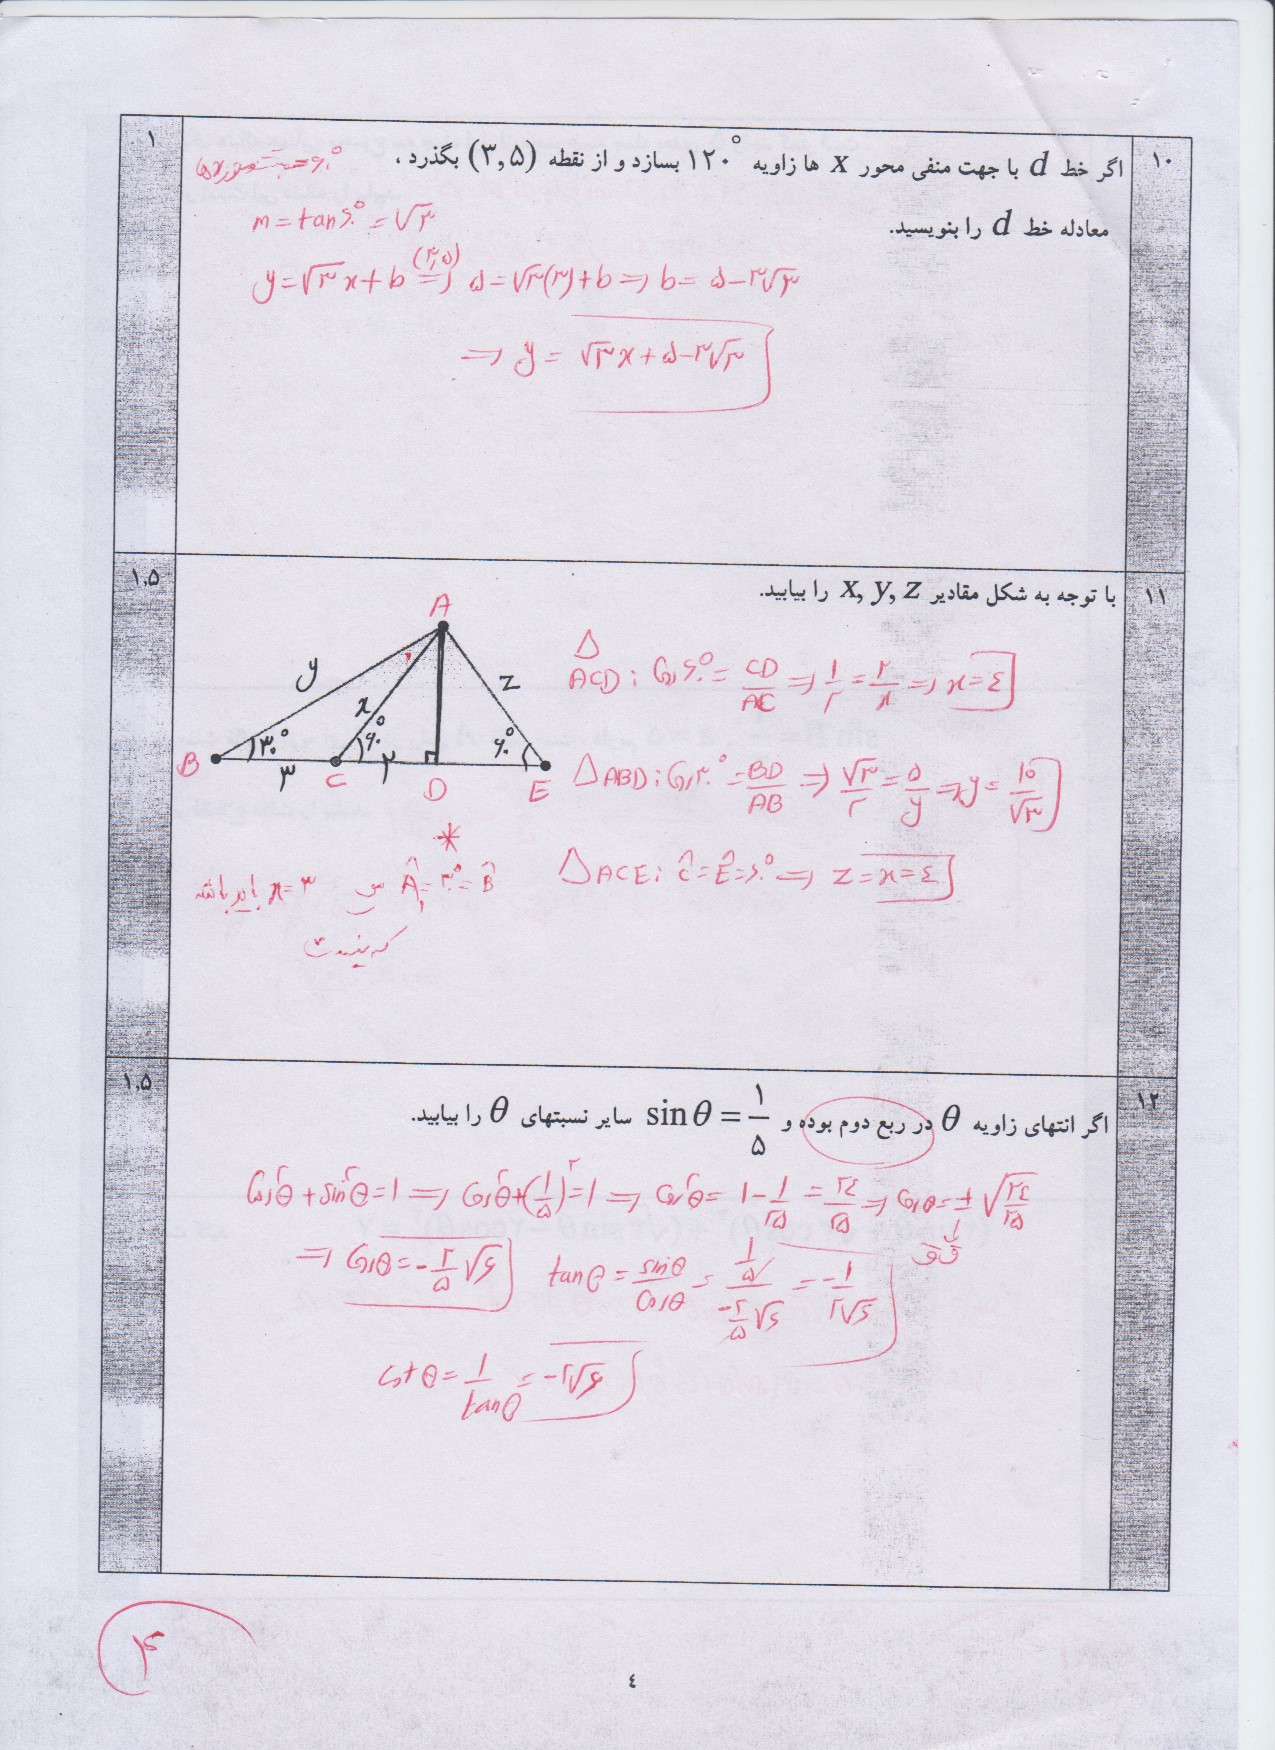 ۱۰
اگر خط d با جهت منفی محور x ها زاویه ۱۲۰° بسازد و از نقطه (۳,۵) بگذرد ،
۱
معادله خط d را بنویسید.
m = tan۶۰° = √۳
y = √۳ x + b (۳,۵)⇒ ۵ = √۳(۳) + b ⇒ b = ۵ - ۳√۳
⇒ y = √۳ x + ۵ - ۳√۳
۱۱
با توجه به شکل مقادیر x, y, z را بیابید.
۱.۵
A
y
x
z
B
۳۰°
۶۰°
۶۰°
۳
C
۲
D
E
△ACD : Cos۶۰° = CD/AC ⇒ ۱/۲ = ۲/x ⇒ x = ٤
△ABD : Cos۳۰° = BD/AB ⇒ √۳/۲ = ۵/y ⇒ y = ۱۰/√۳
△ACE : Ĉ = Ê = ۶۰° ⇒ z = x = ٤
*
B̂ = ۳۰° = Â₁ پس x = ۳ باید باشد
که نیست
۱۲
اگر انتهای زاویه θ در ربع دوم بوده و sin θ = ۱/۵ سایر نسبتهای θ را بیابید.
۱.۵
Cos²θ + sin²θ = ۱ ⇒ Cos²θ + (۱/۵)² = ۱ ⇒ Cos²θ = ۱ - ۱/۲۵ = ۲٤/۲۵ ⇒ Cosθ = ± √۲٤/۲۵
ق ق
⇒ Cosθ = -۲/۵ √۶
tanθ = sinθ/Cosθ = (۱/۵)/(-۲/۵ √۶) = -۱/۲√۶
Cotθ = ۱/tanθ = -۲√۶
۴
٤